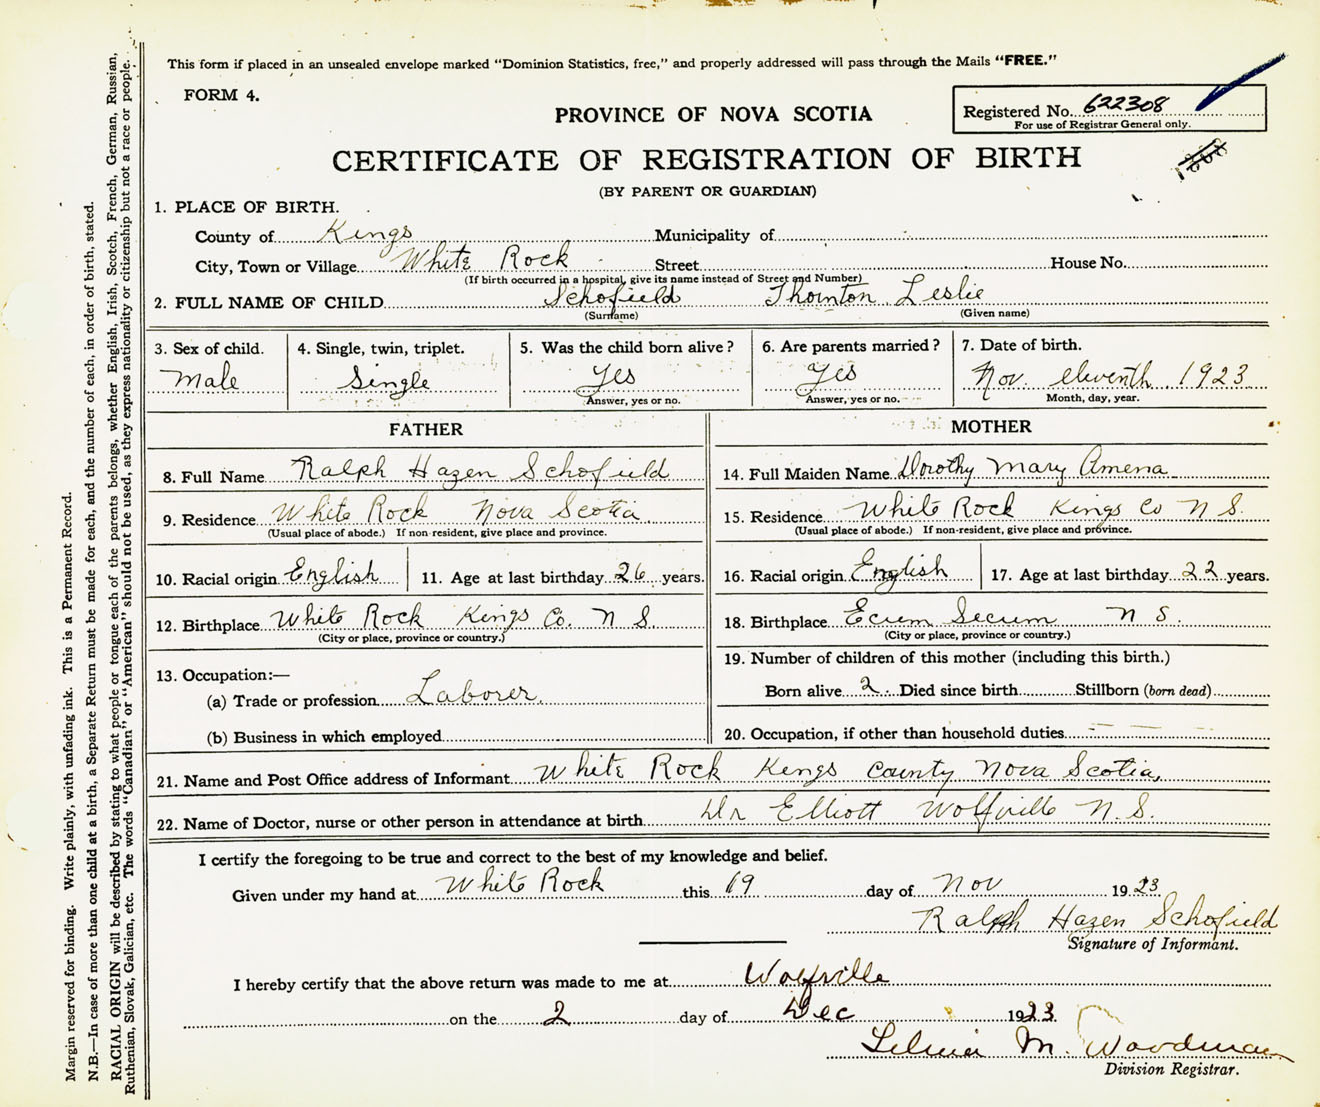 This form if placed in an unsealed envelope marked "Dominion Statistics, free," and properly addressed will pass through the Mails "FREE."
FORM 4.
PROVINCE OF NOVA SCOTIA
Registered No. 622308
For use of Registrar General only.
CERTIFICATE OF REGISTRATION OF BIRTH
(BY PARENT OR GUARDIAN)
1. PLACE OF BIRTH.
County of Kings Municipality of
City, Town or Village White Rock Street House No.
(If birth occurred in a hospital, give its name instead of Street and Number)
2. FULL NAME OF CHILD Schofield Thornton Leslie
(Surname) (Given name)
3. Sex of child. 4. Single, twin, triplet. 5. Was the child born alive? 6. Are parents married? 7. Date of birth.
Male Single Yes Yes Nov. eleventh 1923
Answer, yes or no. Answer, yes or no. Month, day, year.
FATHER MOTHER
8. Full Name Ralph Hazen Schofield 14. Full Maiden Name Dorothy Mary Amena
9. Residence White Rock Nova Scotia 15. Residence White Rock Kings Co N S.
(Usual place of abode.) If non-resident, give place and province. (Usual place of abode.) If non-resident, give place and province.
10. Racial origin English 11. Age at last birthday 26 years. 16. Racial origin English 17. Age at last birthday 22 years.
12. Birthplace White Rock Kings Co. N S. 18. Birthplace Ecum Secum N S.
(City or place, province or country.) (City or place, province or country.)
13. Occupation:— 19. Number of children of this mother (including this birth.)
(a) Trade or profession Laborer. Born alive 2 Died since birth Stillborn (born dead)
(b) Business in which employed 20. Occupation, if other than household duties
21. Name and Post Office address of Informant White Rock Kings County Nova Scotia,
22. Name of Doctor, nurse or other person in attendance at birth Dr Elliott Wolfville N.S.
I certify the foregoing to be true and correct to the best of my knowledge and belief.
Given under my hand at White Rock this 19 day of Nov 1923
Ralph Hazen Schofield
Signature of Informant.
I hereby certify that the above return was made to me at Wolfville
on the 2 day of Dec 1923
M. Woodman
Division Registrar.
Margin reserved for binding. Write plainly, with unfading ink. This is a Permanent Record.
N.B.—In case of more than one child at a birth, a Separate Return must be made for each, and the number of each, in order of birth, stated.
RACIAL ORIGIN will be described by stating to what people or tongue each of the parents belongs, whether English, Irish, Scotch, French, German, Russian,
Ruthenian, Slovak, Galician, etc. The words "Canadian" or "American" should not be used, as they express nationality or citizenship but not a race or people.